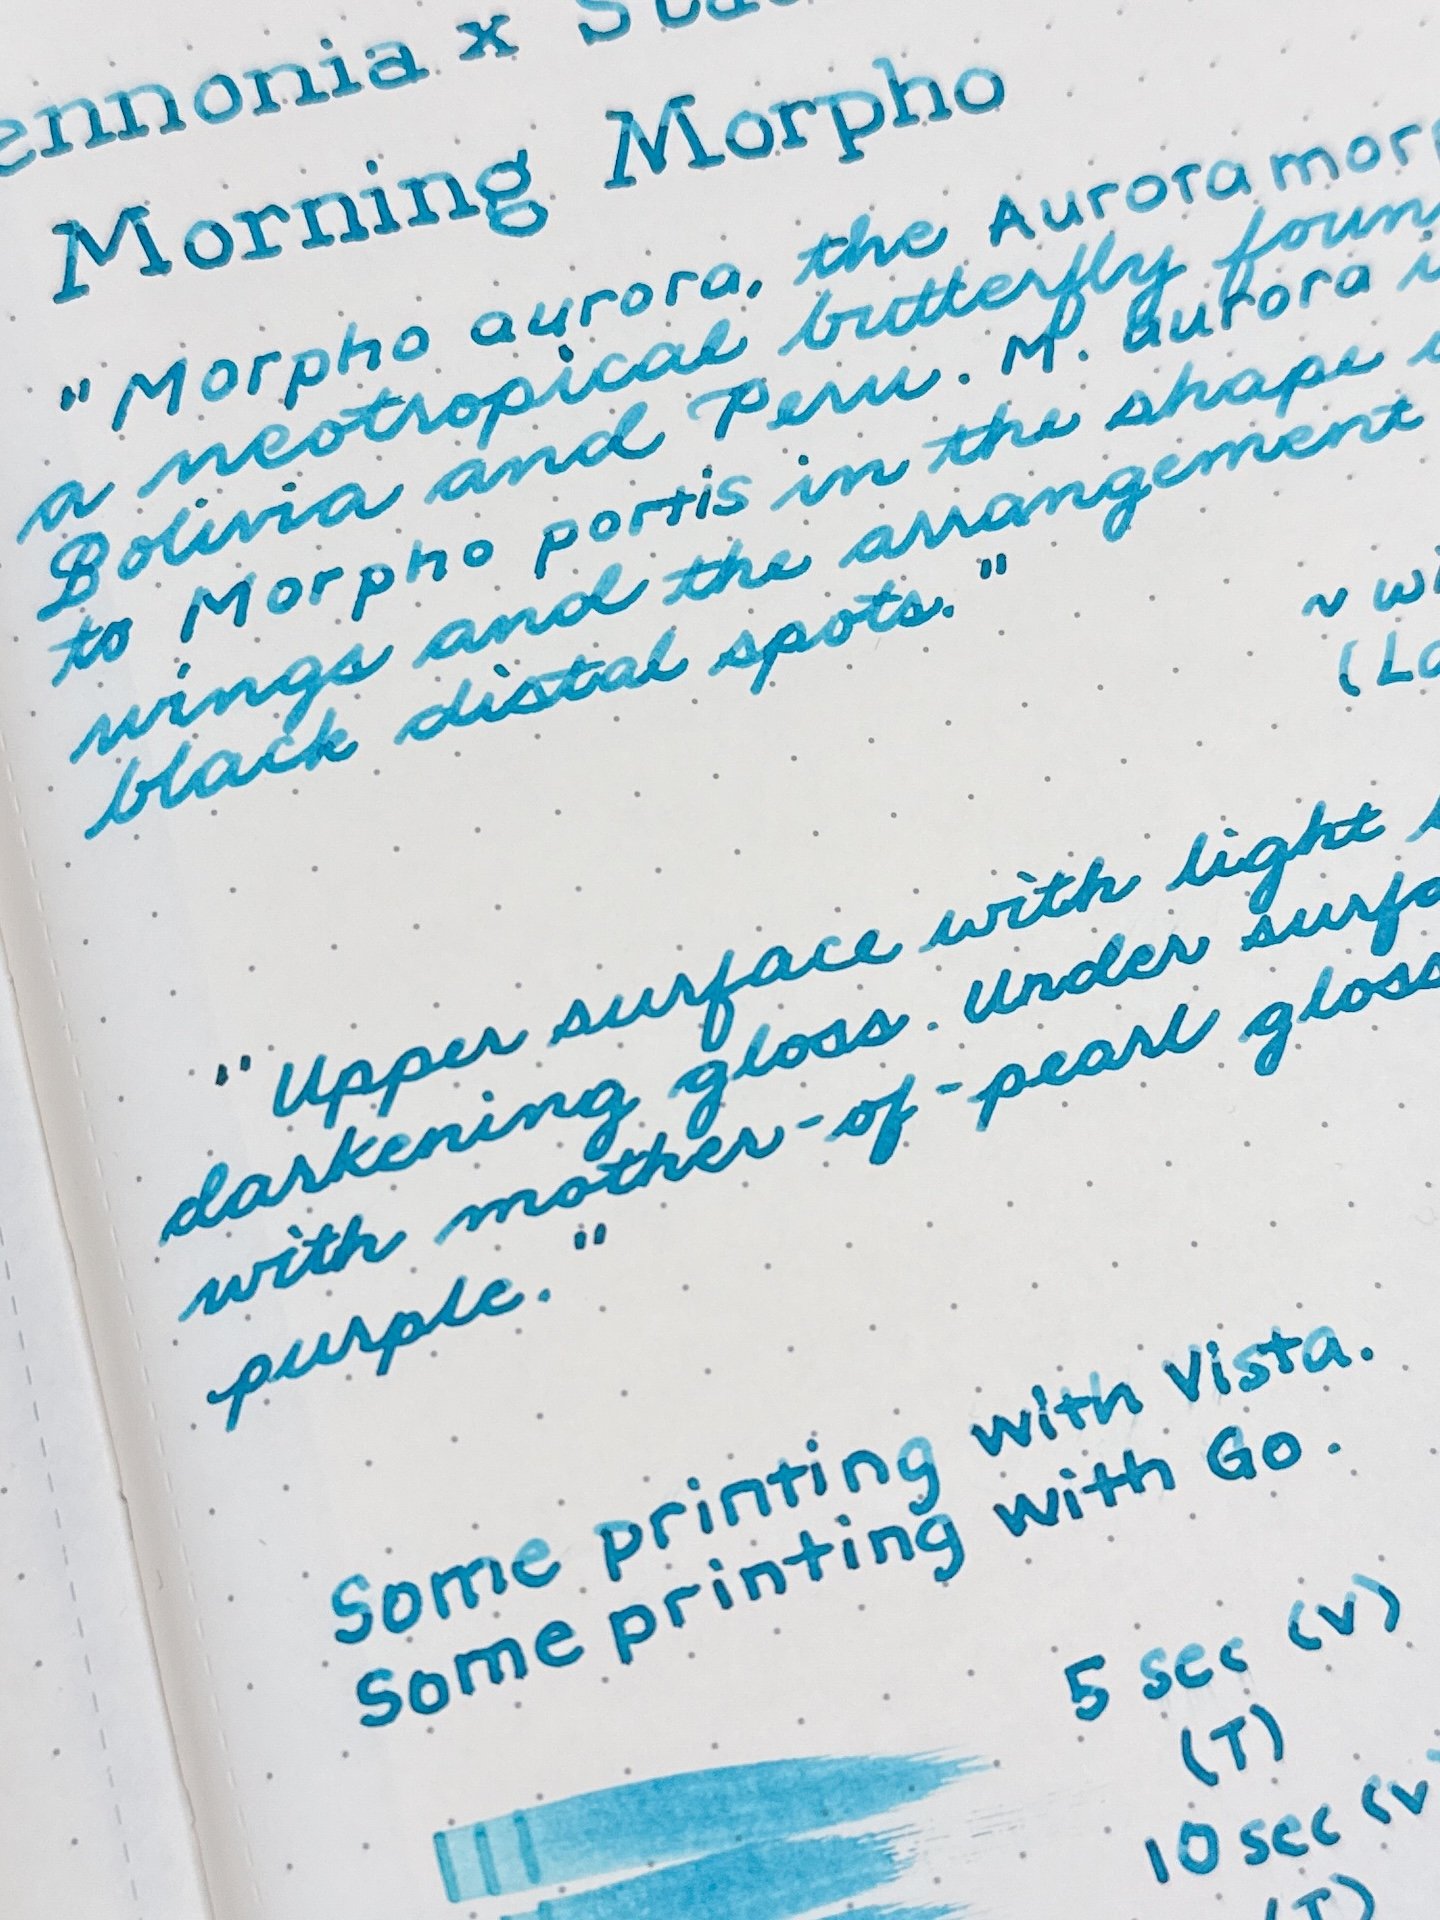 Morning Morpho
"Morpho aurora, the Aurora
a neotropical butterfly
Bolivia and Peru. M. aurora
to Morpho portis in the shape
wings and the arrangement
black distal spots."
"Upper surface with light
darkening gloss. Under
with mother-of-pearl gloss
purple."
Some printing with Vista.
Some printing with Go.
5 sec (V)
(T)
10 sec (V
(T)